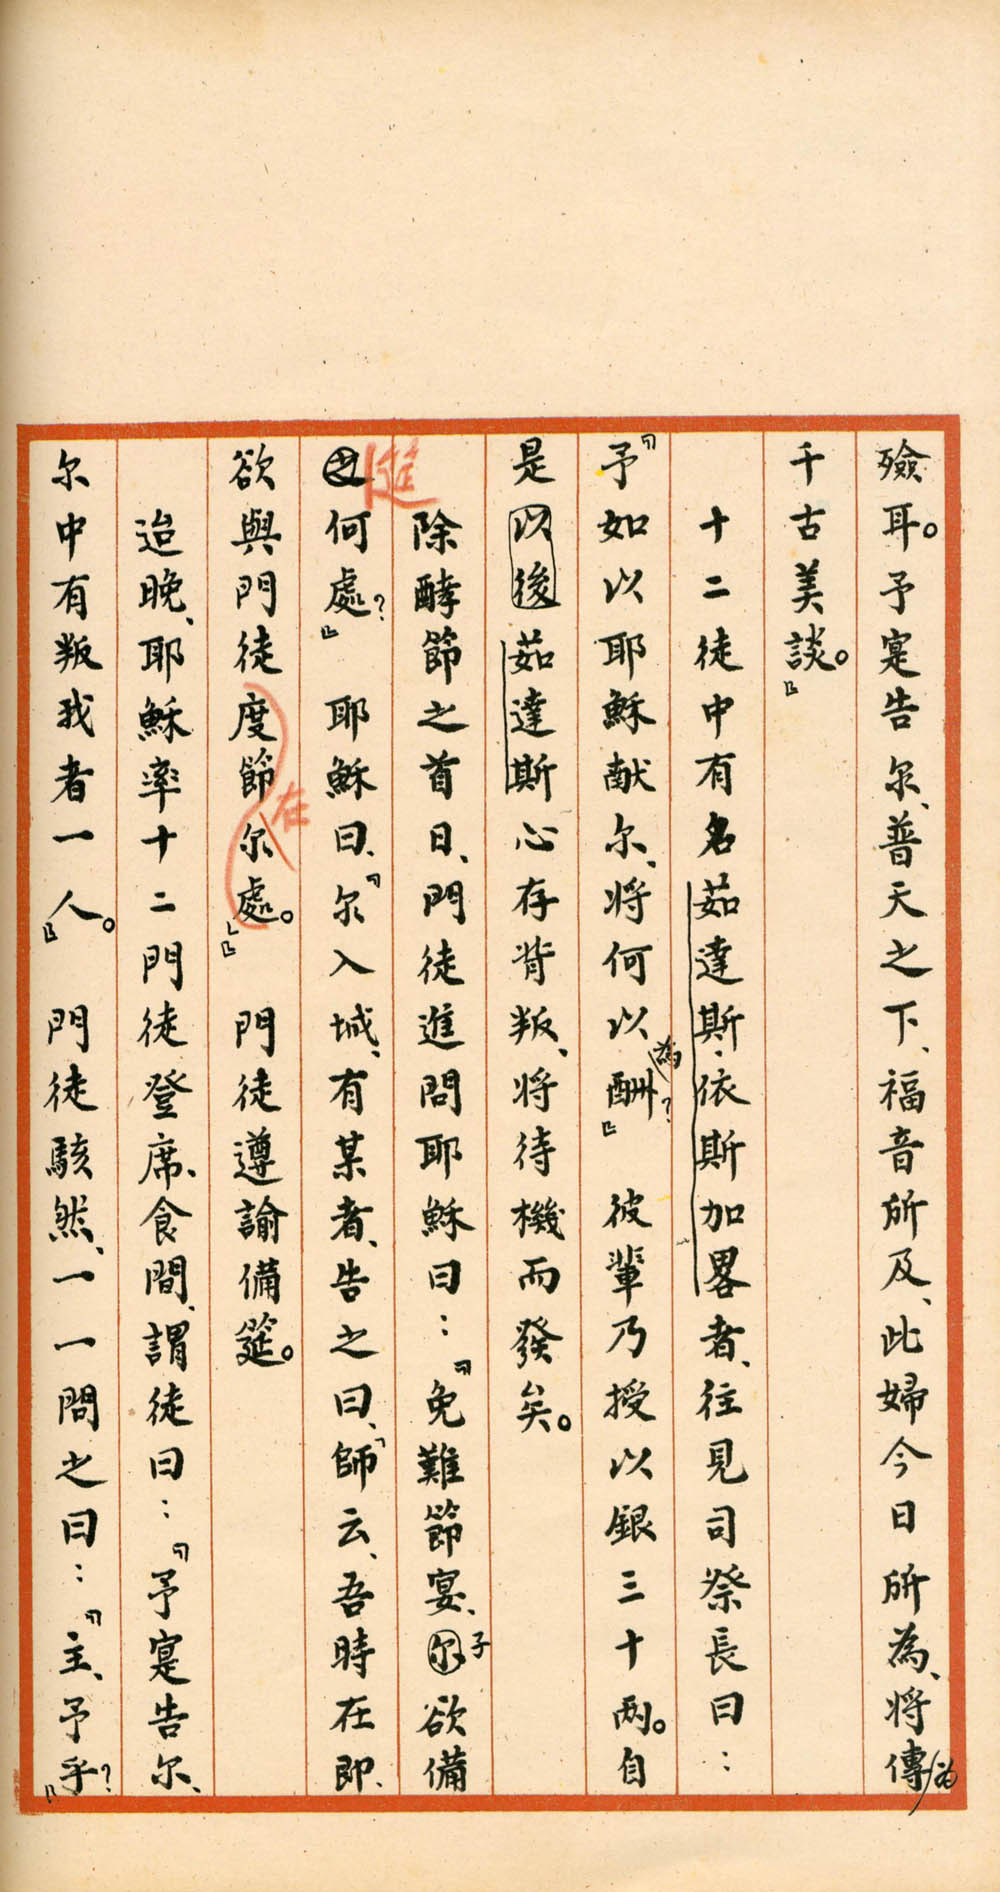 殮耳。予寔告尔、普天之下、福音所及、此婦今日所為、將傳為
千古美談。』
十二徒中有名茹達斯·依斯加畧者、往見司祭長曰：
『予如以耶穌献尔、將何以為酬？』彼輩乃授以銀三十両。自
是以後茹達斯心存背叛、將待機而發矣。
除酵節之首日、門徒進問耶穌曰：『免難節宴、尔子欲備
之筵何處？』耶穌曰、『尔入城、有某者、告之曰、「師云、吾時在即、
欲與門徒度節尔處。」』門徒遵諭備筵。在
迨晚、耶穌率十二門徒登席、食間、謂徒曰：『予寔告尔、
尔中有叛我者一人。』門徒駭然、一一問之曰：『主、予乎？』